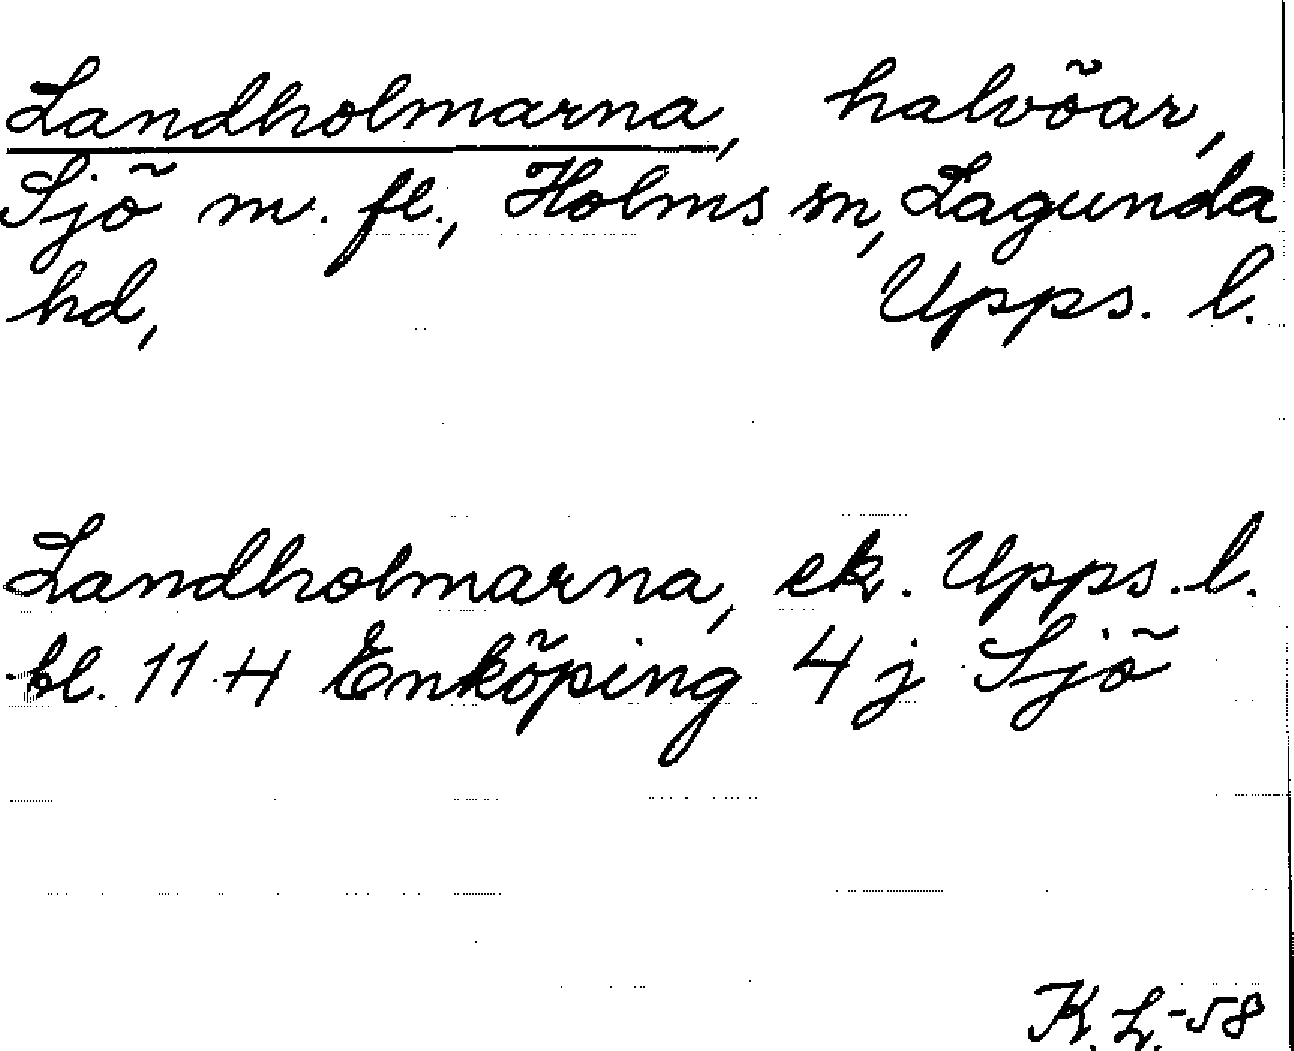 Landholmarna, halvöar,
Sjö m. fl., Holms sn, Lagunda
hd, Upps. l.
Landholmarna, ek. Upps. l.
bl. 11 H Enköping 4 j Sjö
K. L. -58